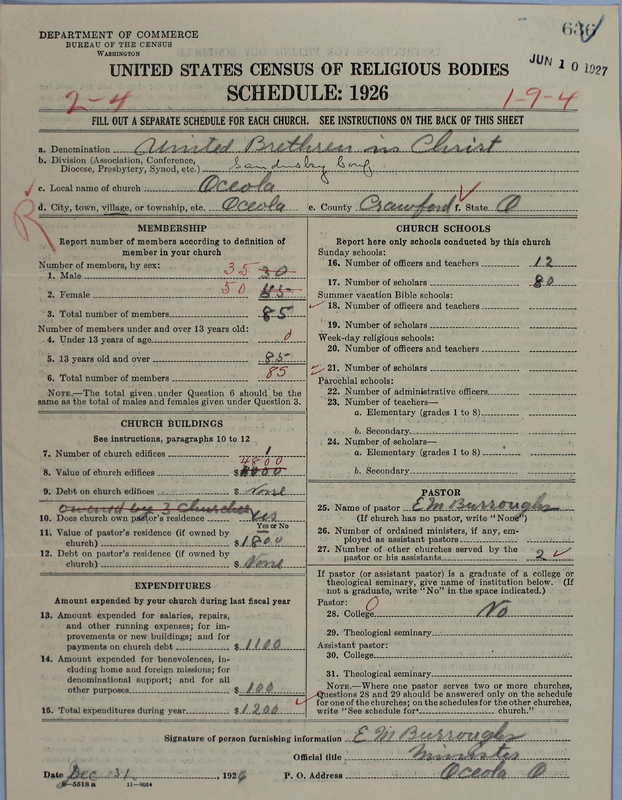 636
DEPARTMENT OF COMMERCE
BUREAU OF THE CENSUS
WASHINGTON
JUN 10 1927
UNITED STATES CENSUS OF RELIGIOUS BODIES
SCHEDULE: 1926
2-4
1-9-4
FILL OUT A SEPARATE SCHEDULE FOR EACH CHURCH. SEE INSTRUCTIONS ON THE BACK OF THIS SHEET
a. Denomination United Brethren in Christ
b. Division (Association, Conference, Diocese, Presbytery, Synod, etc.) Sandusky Conf
c. Local name of church Oceola
d. City, town, village, or township, etc. Oceola e. County Crawford f. State O
R
MEMBERSHIP
Report number of members according to definition of member in your church
Number of members, by sex:
1. Male 35 30
2. Female 50 55
3. Total number of members 85
Number of members under and over 13 years old:
4. Under 13 years of age 0
5. 13 years old and over 85
6. Total number of members 85
NOTE.—The total given under Question 6 should be the same as the total of males and females given under Question 3.
CHURCH BUILDINGS
See instructions, paragraphs 10 to 12
7. Number of church edifices 1
8. Value of church edifices $ 4800
9. Debt on church edifices $ None
owned by 3 Churches
10. Does church own pastor's residence Yes
Yes or No
11. Value of pastor's residence (if owned by church) $ 1800
12. Debt on pastor's residence (if owned by church) $ None
EXPENDITURES
Amount expended by your church during last fiscal year
13. Amount expended for salaries, repairs, and other running expenses; for improvements or new buildings; and for payments on church debt $ 1100
14. Amount expended for benevolences, including home and foreign missions; for denominational support; and for all other purposes $ 100
15. Total expenditures during year $ 1200
CHURCH SCHOOLS
Report here only schools conducted by this church
Sunday schools:
16. Number of officers and teachers 12
17. Number of scholars 80
Summer vacation Bible schools:
18. Number of officers and teachers
19. Number of scholars
Week-day religious schools:
20. Number of officers and teachers
21. Number of scholars
Parochial schools:
22. Number of administrative officers
23. Number of teachers—
a. Elementary (grades 1 to 8)
b. Secondary
24. Number of scholars—
a. Elementary (grades 1 to 8)
b. Secondary
PASTOR
25. Name of pastor E M Burroughs
(If church has no pastor, write "None")
26. Number of ordained ministers, if any, employed as assistant pastors
27. Number of other churches served by the pastor or his assistants 2
If pastor (or assistant pastor) is a graduate of a college or theological seminary, give name of institution below. (If not a graduate, write "No" in the space indicated.)
Pastor:
28. College 0 No
29. Theological seminary
Assistant pastor:
30. College
31. Theological seminary
NOTE.—Where one pastor serves two or more churches, Questions 28 and 29 should be answered only on the schedule for one of the churches; on the schedules for the other churches, write "See schedule for church."
Signature of person furnishing information E M Burroughs
Official title Minister
Date Dec 31, 1926 P. O. Address Oceola O
8—5518 a 11—9054